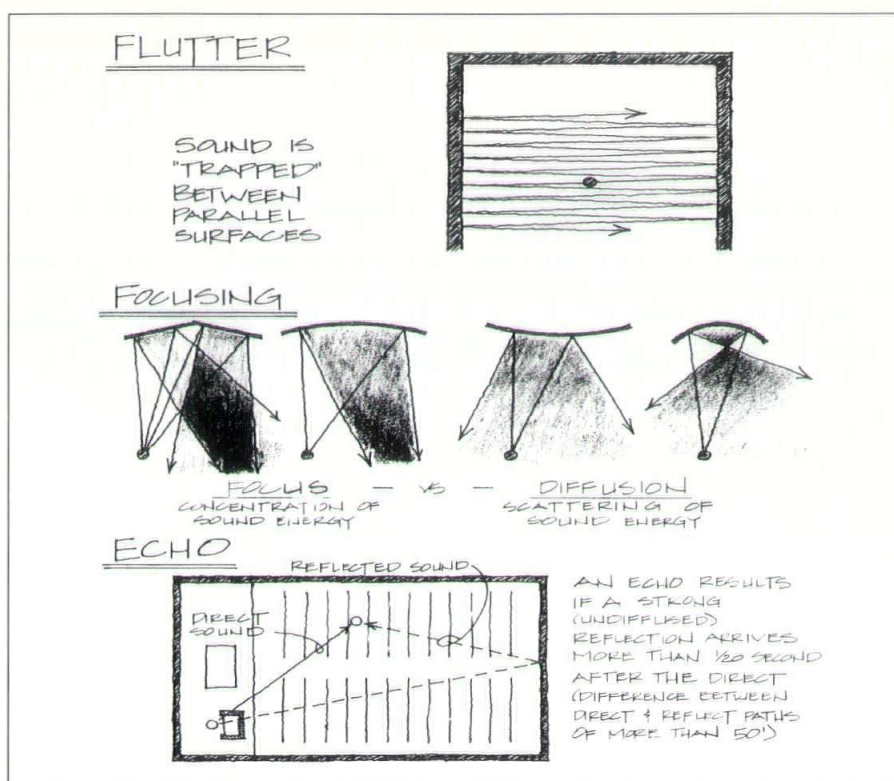 FLUTTER
SOUND IS
"TRAPPED"
BETWEEN
PARALLEL
SURFACES
FOCUSING
FOCUS - VS - DIFFUSION
CONCENTRATION OF
SOUND ENERGY
SCATTERING OF
SOUND ENERGY
ECHO
REFLECTED SOUND
DIRECT
SOUND
AN ECHO RESULTS
IF A STRONG
(UNDIFFUSED)
REFLECTION ARRIVES
MORE THAN 1/20 SECOND
AFTER THE DIRECT
(DIFFERENCE BETWEEN
DIRECT & REFLECT PATHS
OF MORE THAN 50')